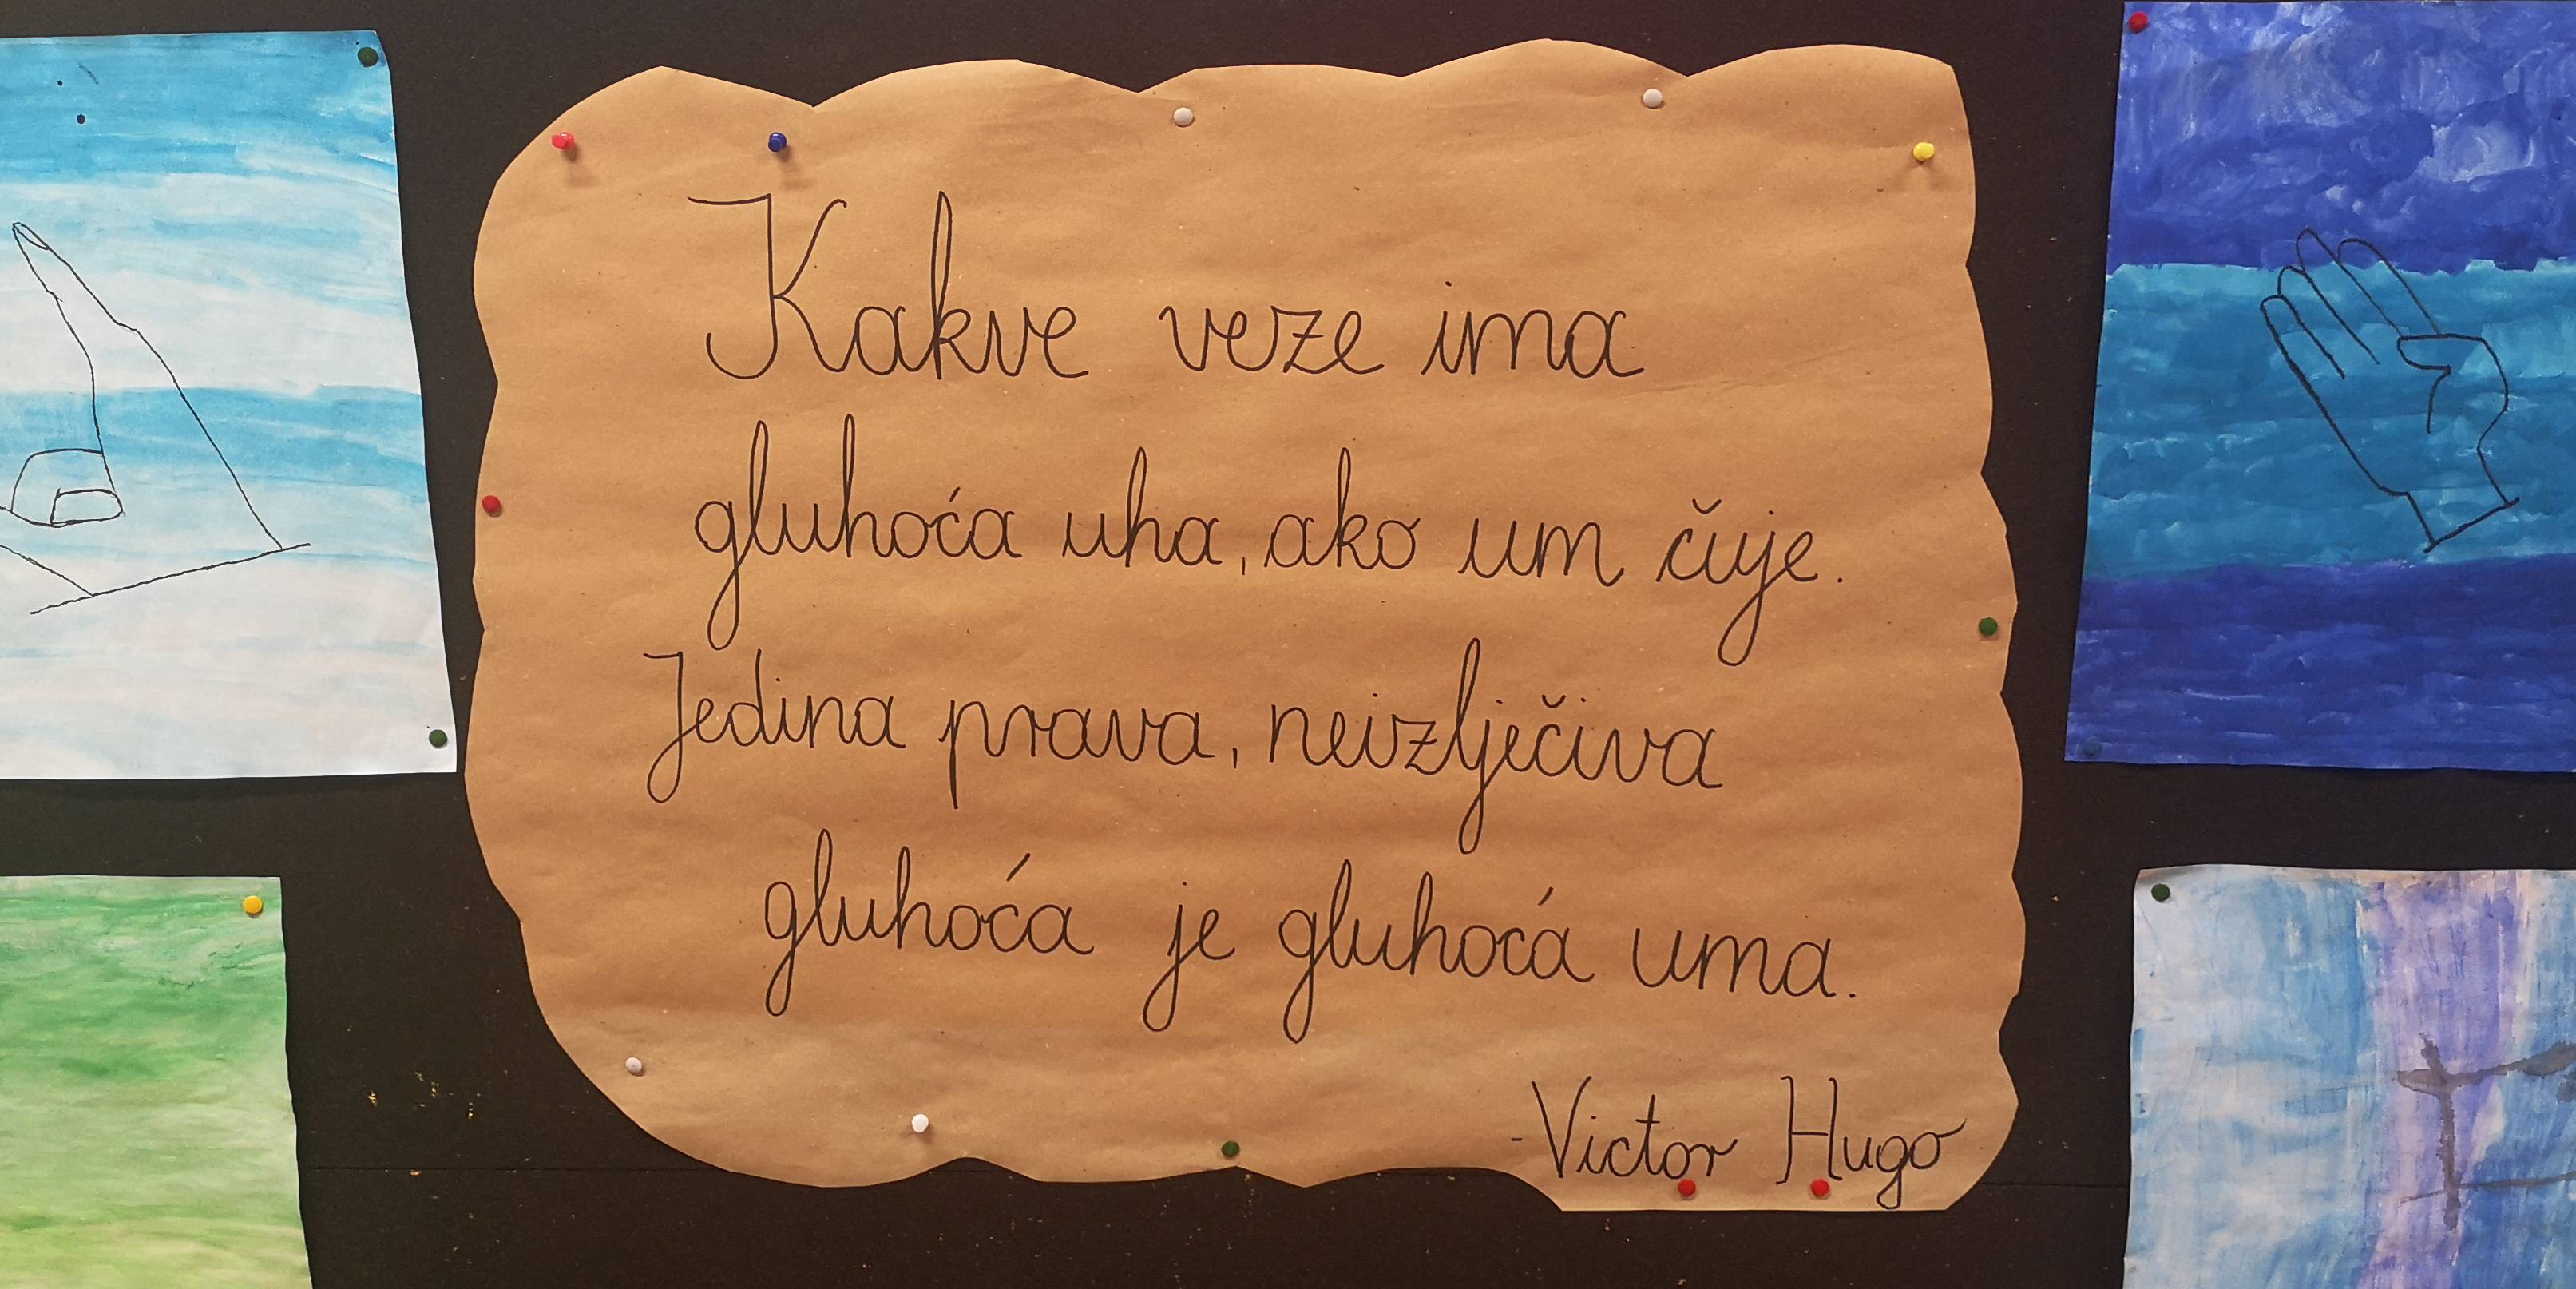 Kakve veze ima
gluhoća uha, ako um čuje.
Jedina prava, neizlječiva
gluhoća je gluhoća uma.
-Victor Hugo